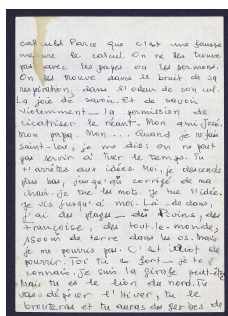 calculs. Parce que c'est une fausse
mesure le calcul. On ne les trouve
pas avec les pages ou les sermons.
On les trouve dans le bruit de sa
respiration, dans l'odeur de son cul.
La joie de savoir. Et de savoir
violemment _ la permission de
cicatriser le néant _ Mon ami, José.
Mon papa. Mon ... Quand je refais
Saint-leu, je me dis: on ne peut
pas servir à tuer le temps. Tu
t'arrêtes aux idées. Moi, je descends
plus bas, jusqu'au corrigé de ma
chair. Je tue les mots. Je tue l'idée.
Je vis jusqu'à moi. Là-dedans,
j'ai des plages _ des divins, des
françoise, des tout-le-monde,
15000 m de terre dans les os. Mais
je ne pourris pas. C'est idiot de
pourrir. Toi tu es fort _ je te
connais. Je suis la girafe peut-être
Mais tu es le lion du nord. Tu
vas déjouer l'Hiver, tu le
brouteras et tu auras des gerbes de